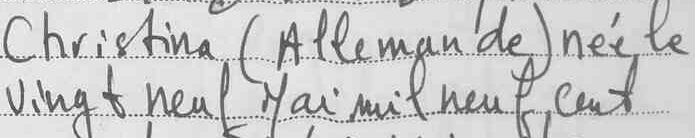 Christina (Allemande) née le
vingt neuf Mai mil neuf cent